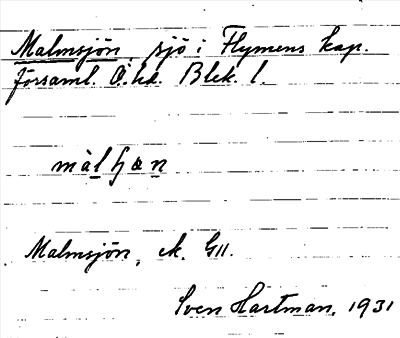 Malmsjön, sjö i Flymens kap.
församl. Ö. hd. Blek. l.
màlɧøn
Malmsjön, ek. G11.
Sven Hartman. 1931